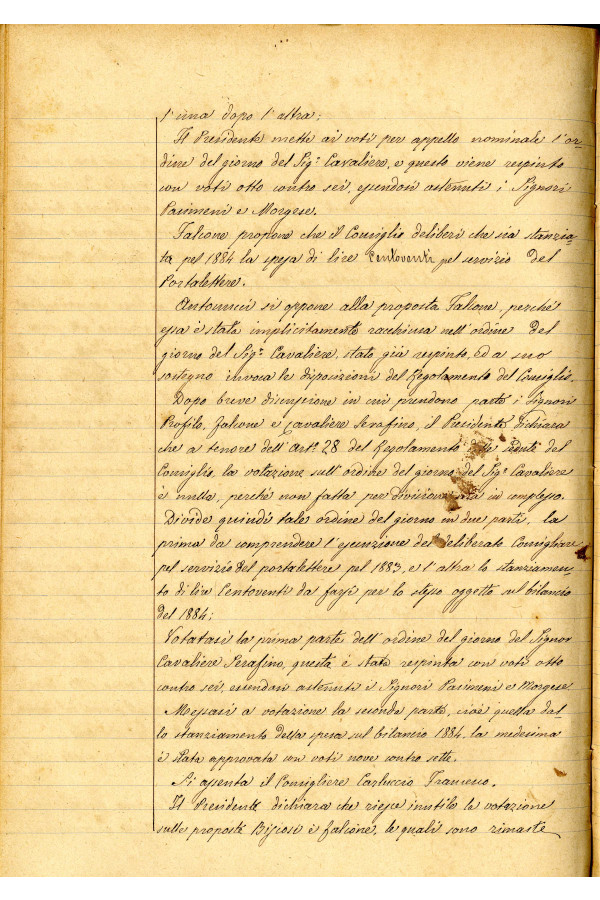 l'una dopo l'altra;
Il Presidente mette ai voti per appello nominale l'or-
dine del giorno del Sig.r Cavaliere, e questo viene respinto
con voti otto contro sei, essendosi astenuti i Signori
Pasimeni e Morgese.
Falcone propone che il Consiglio deliberi che sia stanzia-
ta pel 1884 la spesa di lire Centoventi pel servizio del
Portalettere.
Antonucci si oppone alla proposta Falcone, perché
essa è stata implicitamente racchiusa nell'ordine del
giorno del Sig.r Cavaliere, stato già respinto, ed a suo
sostegno invoca le disposizioni del Regolamento del Consiglio.
Dopo breve discussione in cui prendono parte i Signori
Profilo, Falcone e Cavaliere Serafino, il Presidente dichiara
che a tenore dell'Art.o 28 del Regolamento delle sedute del
Consiglio, la votazione sull'ordine del giorno del Sig.r Cavaliere
è nulla, perché non fatta per divisione ma in complesso.
Divide quindi tale ordine del giorno in due parti, la
prima da comprendere l'esecuzione del deliberato Consigliare
pel servizio del portalettere pel 1883, e l'altra lo stanziamen-
to di lire Centoventi da farsi per lo stesso oggetto sul bilancio
del 1884;
Votatasi la prima parte dell'ordine del giorno del Signor
Cavaliere Serafino, questa è stata respinta con voti otto
contro sei, essendosi astenuti i Signori Pasimeni e Morgese
Messasi a votazione la seconda parte, cioè quella del-
lo stanziamento della spesa sul bilancio 1884, la medesima
è stata approvata con voti nove contro sette.
Si assenta il Consigliere Carluccio Francesco.
Il Presidente dichiara che riesce inutile la votazione
sulle proposte Biscosi e Falcone, le quali sono rimaste